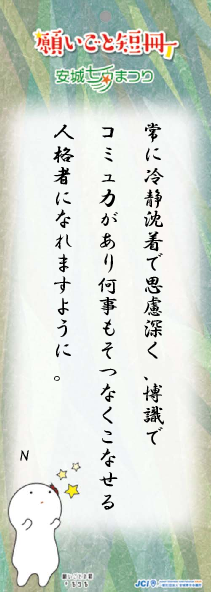 願いごと短冊
安城七夕まつり
常に冷静沈着で思慮深く、博識で
コミュ力があり何事もそつなくこなせる
人格者になれますように。
N
JCI